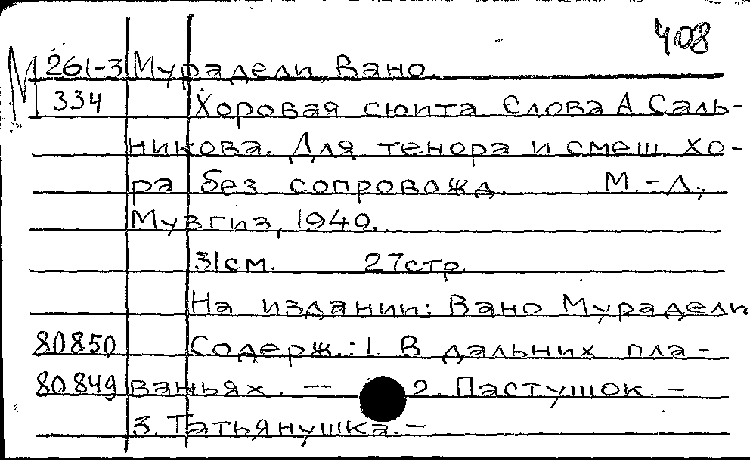 408
М 261-3 Мурадели, Вано.
334 Хоровая сюита. Слова А. Саль-
никова. Для тенора и смеш. хо-
ра без сопровожд. М.-Л.,
Музгиз, 1940.
31см. 27стр.
На издании: Вано Мурадели
80850 Содерж.: 1. В дальних пла-
80849 ваньях. — 2. Пастушок. —
3. Татьянушка. —